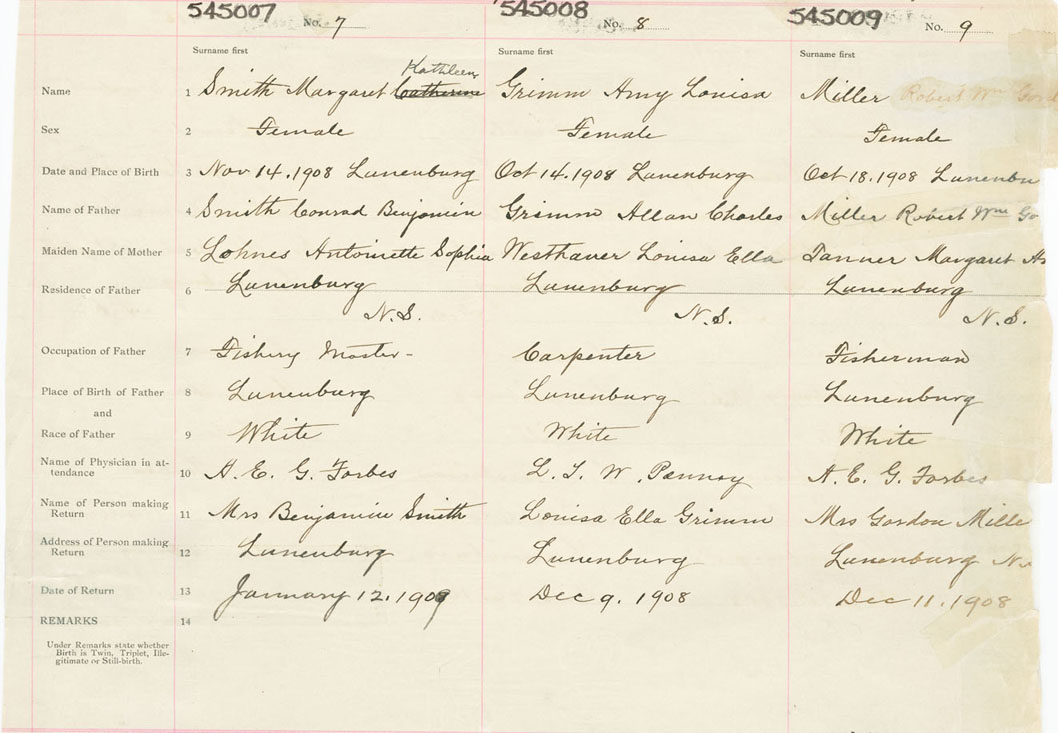 545007 No. 7 545008 No. 8 545009 No. 9
Surname first Surname first Surname first
Kathleen
Name 1 Smith Margaret Catherine Grimm Amy Louisa Miller Robert Wm
Sex 2 Female Female Female
Date and Place of Birth 3 Nov 14. 1908 Lunenburg Oct 14. 1908 Lunenburg Oct 18. 1908 Lunenbu
Name of Father 4 Smith Conrad Benjamin Grimm Allan Charles Miller Robert Wm Go
Maiden Name of Mother 5 Lohnes Antoinette Sophia Westhaver Louisa Ella Tanner Margaret
Residence of Father 6 Lunenburg Lunenburg Lunenburg
N.S. N.S. N.S.
Occupation of Father 7 Fishery Master- Carpenter Fisherman
Place of Birth of Father 8 Lunenburg Lunenburg Lunenburg
and
Race of Father 9 White White White
Name of Physician in at-
tendance 10 A. E. G. Forbes A. E. G. Forbes
Name of Person making
Return 11 Mrs Benjamin Smith Louisa Ella Grimm Mrs Gordon Mille
Address of Person making
Return 12 Lunenburg Lunenburg Lunenburg
Date of Return 13 January 12. 1909 Dec 9. 1908 Dec 11. 1908
REMARKS 14
Under Remarks state whether
Birth is Twin, Triplet, Ille-
gitimate or Still-birth.